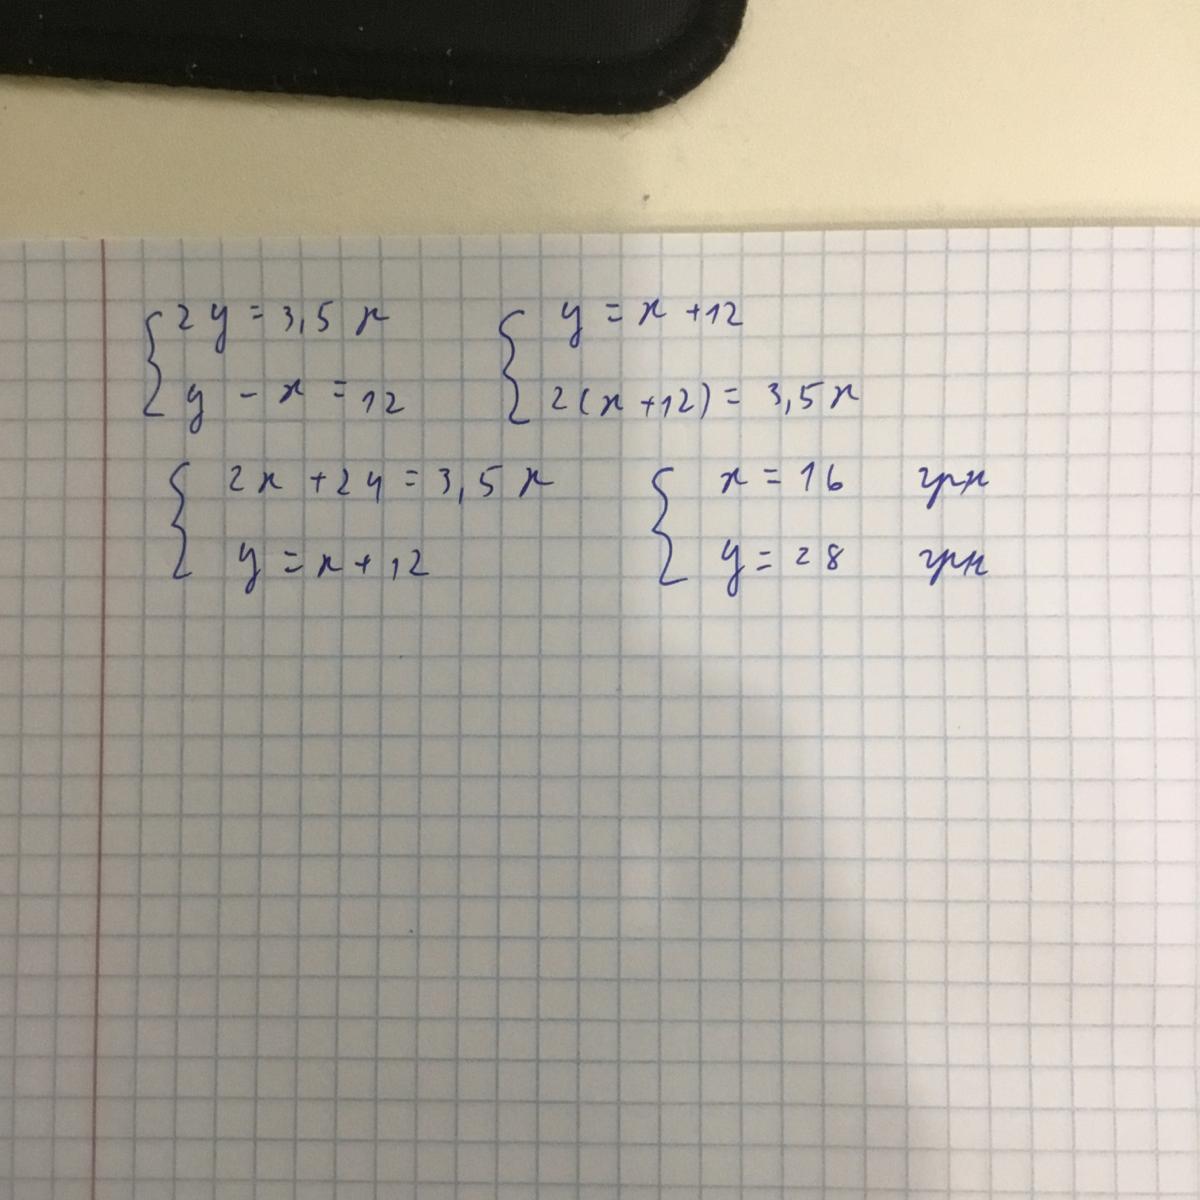 { 2y = 3,5x { y = x + 12
y - x = 12 2(x + 12) = 3,5x
{ 2x + 24 = 3,5x { x = 16 грн
y = x + 12 y = 28 грн